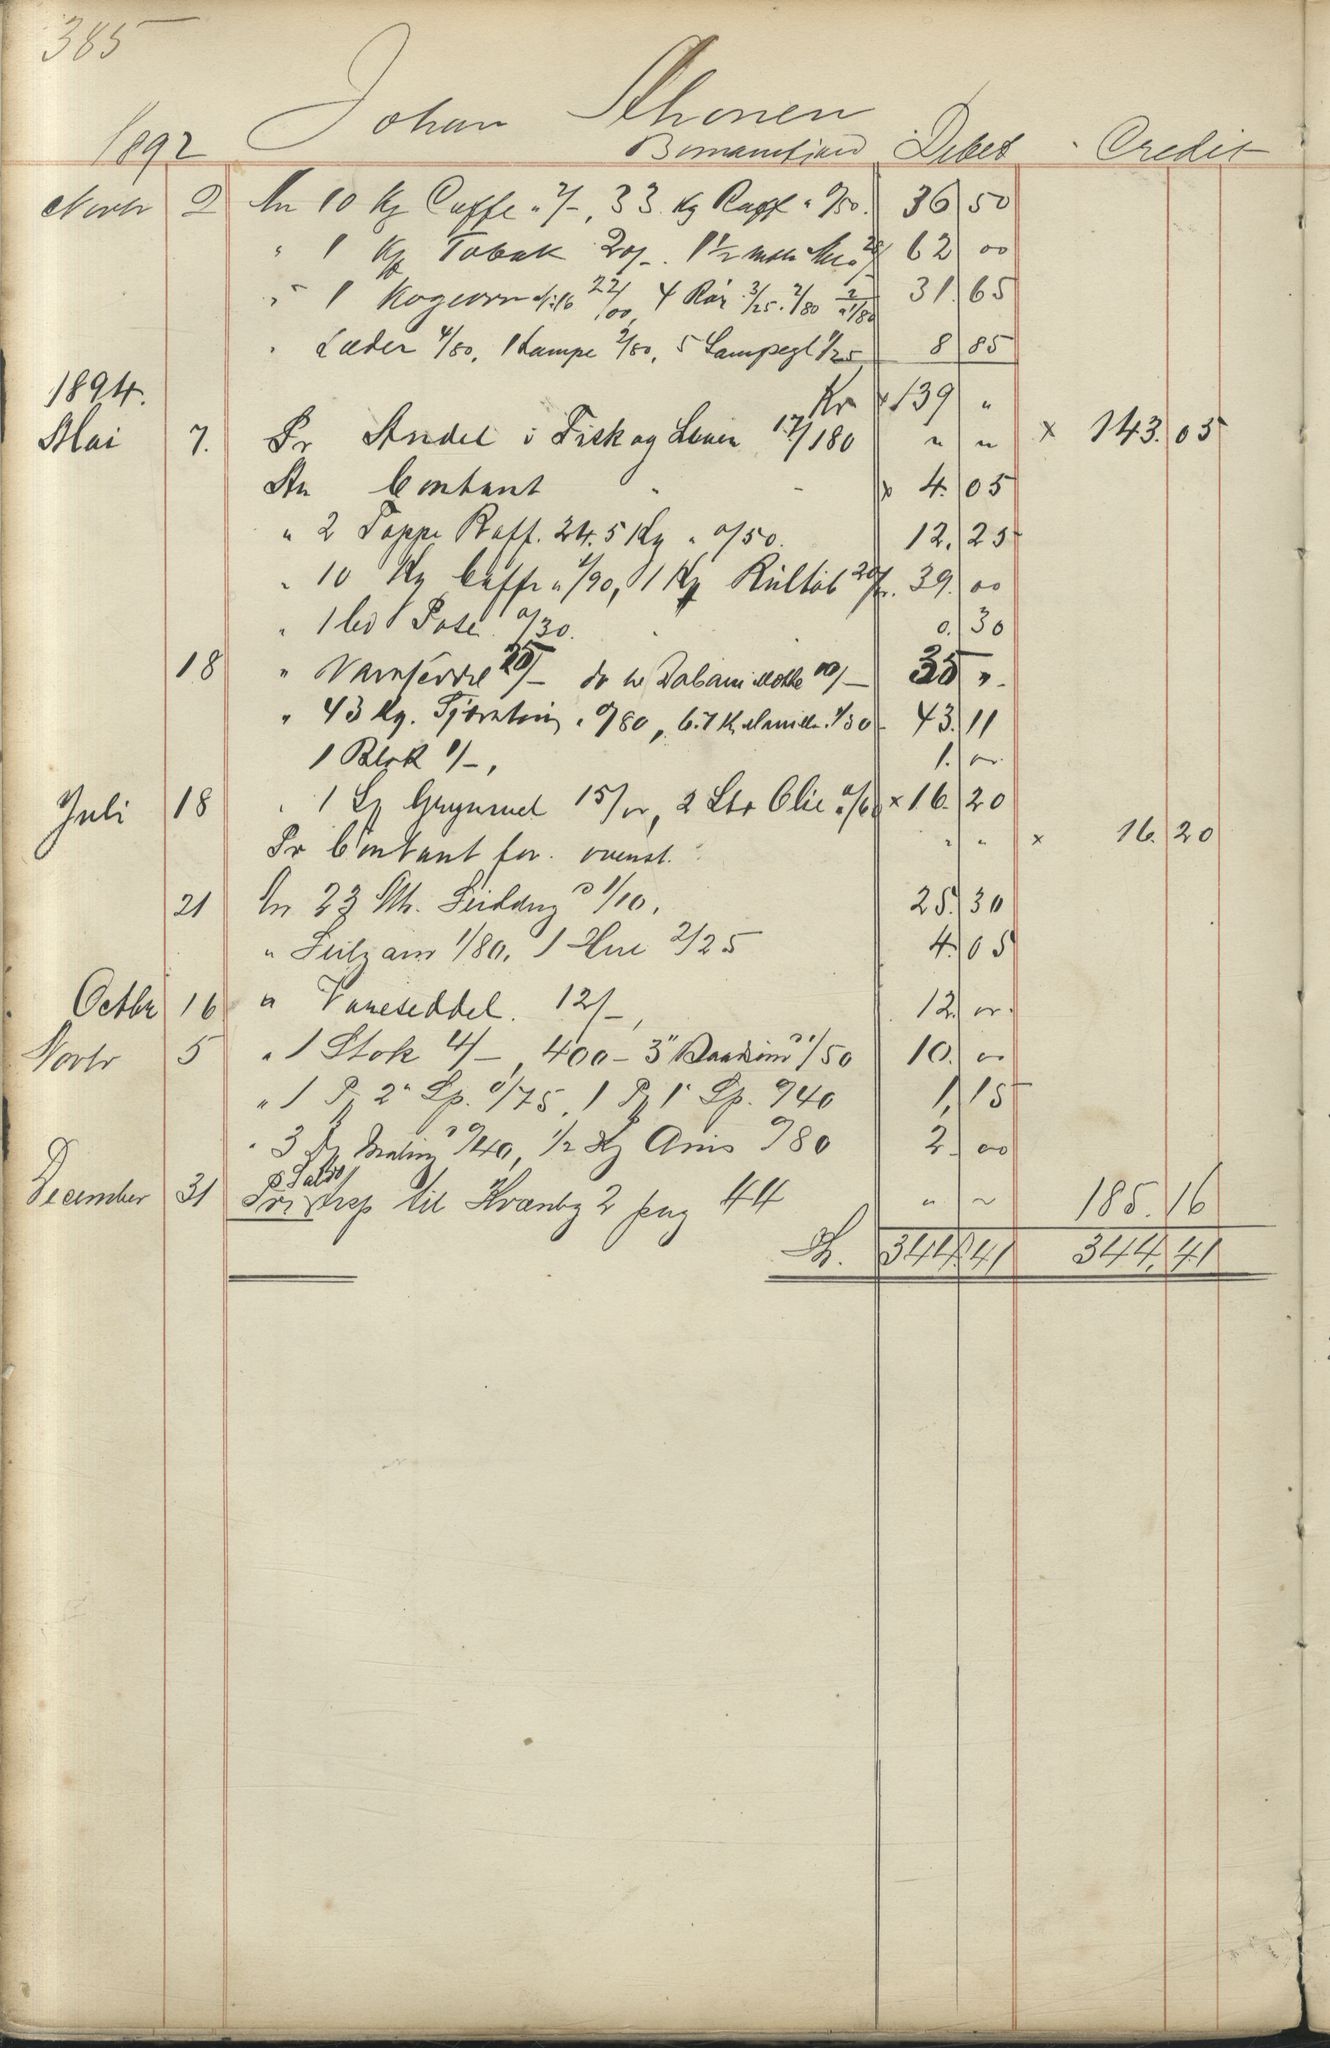 385
Johan Ahonen
1892 Debet Credit
Novbr 2 An 10 Kg Caffe " 2/-, 33 Kg Raff " 0/50. 36 50
" 1 Kg Tobak 20/-. 1 1/2 62 00
" 1 Kogeovn 22/00, 4 Rör 3/25. 2/80 31.65
" Læder 4/80, 1 Lampe 2/80, 5 Lampegl 1/25 8 85
1894. Kr x 139 "
Mai 7. Pr Andel i Fisk og Lever 17/180 " " x 143.05
An Contant x 4.05
" 2 Toppe Raff. 24.5 Kg " 0/50. 12.25
" 10 Kg Caffe " 1/90, 1 Kg Rultob 20/-. 39.00
" 1 Pose 0/30. 0.30
18 " 25/- do 10/- 35 "
" 43 Kg. " 0/80, 6.7 K Manilla 1/30 43.11
1 Blok 1/-, 1. "
Juli 18 " 1 Sæ Grynmel 15/00, 2 Ltr Olie 0/60 x 16.20
Pr Contant for ovenst. " " x 16.20
21 An 23 Mtr. Seildug a 1/10. 25.30
" 1/80, 1 Hue 2/25 4.05
Octbr 16 " Vareseddel. 12/-, 12. "
Novbr 5 " 1 Stok 4/-, 400 - 3" a 1/50 10. "
" 1 Pk 2" Sp. 0/75, 1 Pk 1" Sp. 0/40 1,15
" 3 Maling a 0/40, 1/2 Kg Anis 0/80 2.00
December 31 Pr Saldo trsp til Kvænbg 2 pag 44 " " 185.16
Kr. 344.41 344.41